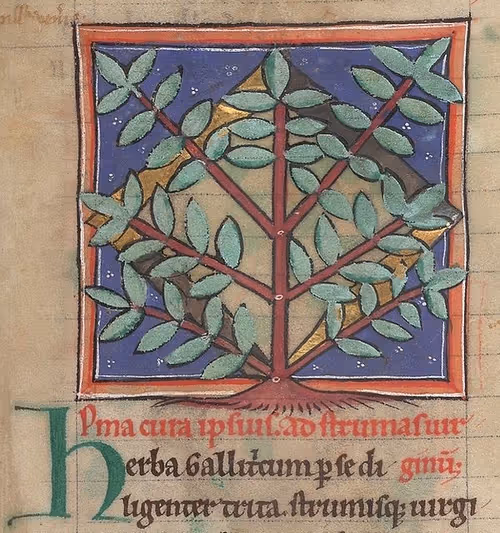 Prima cura ipsius. ad strumas uir
herba Gallitricum p se di ginũ;
ligenter trita. strumisq; uirgi